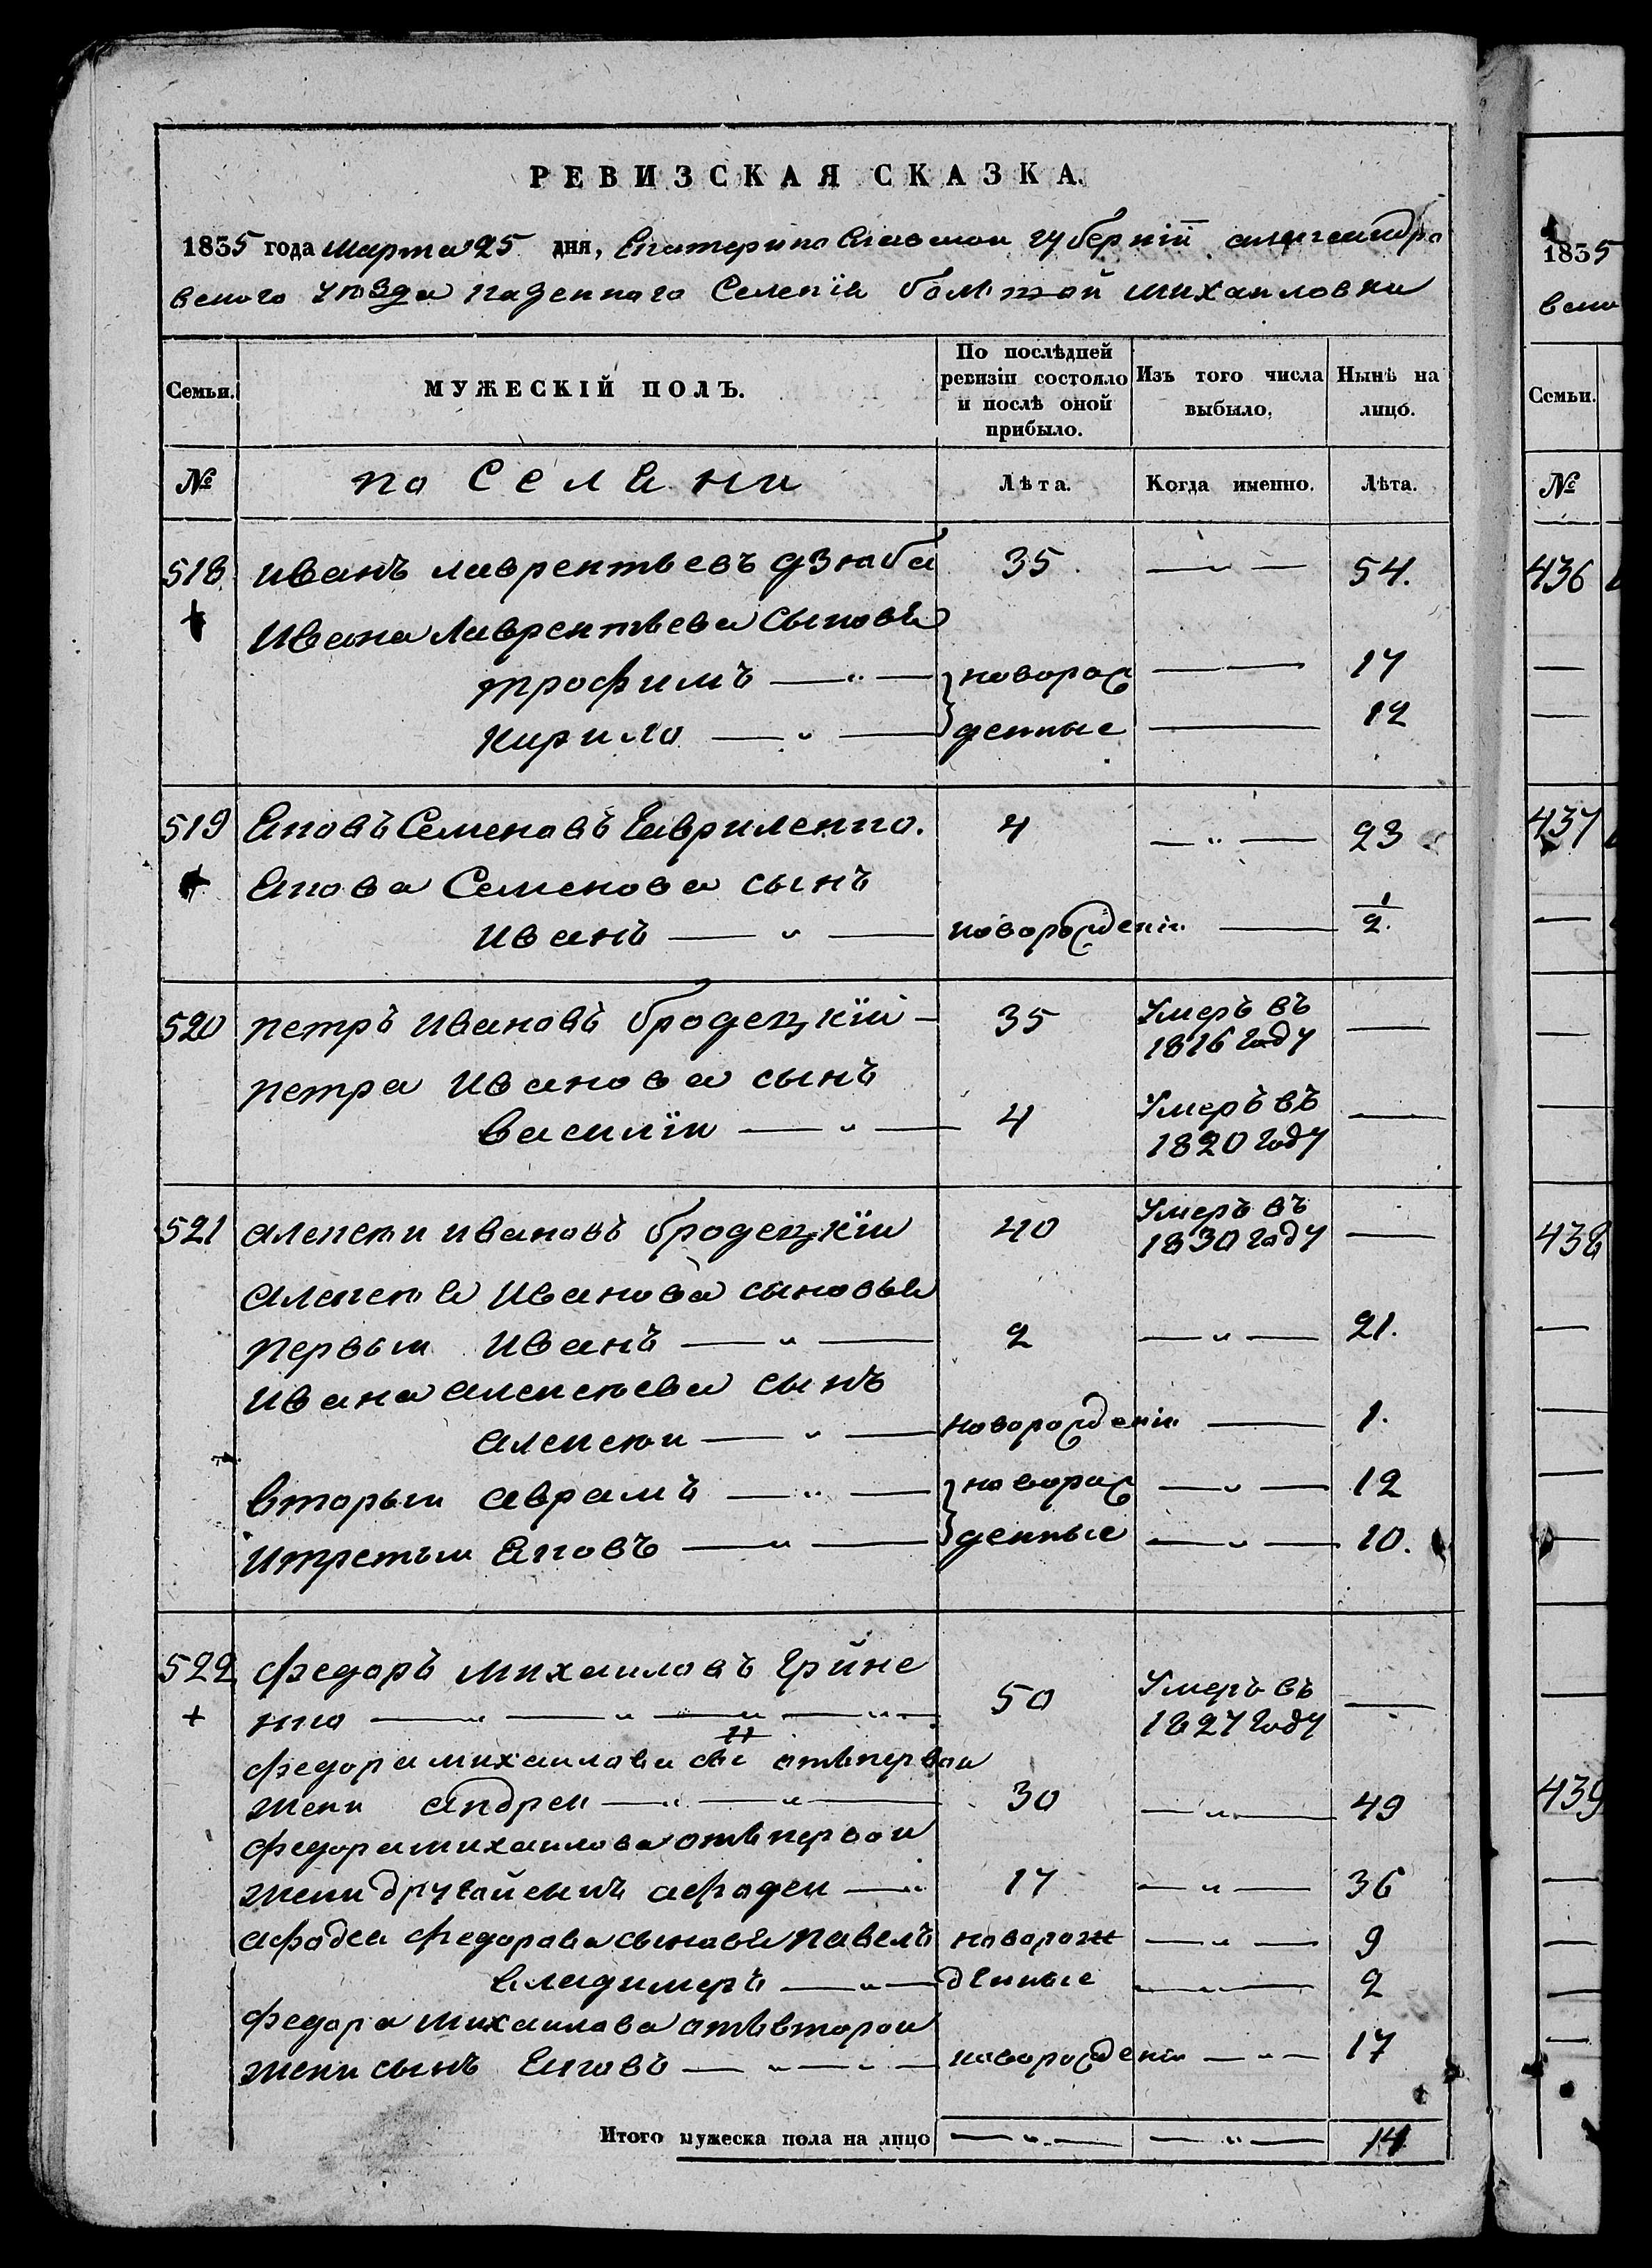 РЕВИЗСКАЯ СКАЗКА.
1835 года марта 25 дня, Екатеринославской губернїи александро
вского уѣзда казенного Селенїя болшой михайловки
Семьи. МУЖЕСКІЙ ПОЛЪ. По послѣдней ревизіи состояло и послѣ оной прибыло. Изъ того числа выбыло, Нынѣ на лицо.
№ поселяни Лѣта. Когда именно. Лѣта.
518 иванъ лаврентьевъ дзюба 35 — „ — 54.
Ивана Лаврентьева сыновья
трофимъ — „ — новорож — — 17
кирило — „ — денные — 12
519 Яковъ Семеновъ Гавриленко. 4 — „ — 23
Якова Семенова сынъ
иванъ — „ — новорожденій — 1/2.
520 петръ ивановъ бродецкїй — 35 Умеръ въ 1816 году —
петра Иванова сынъ
василїй — „ — 4 Умеръ въ 1820 году —
521 алексѣй ивановъ бродецкїй 40 Умеръ въ 1830 году —
алексѣя Иванова сыновья
первый иванъ — „ — 2 — „ — 21.
Ивана алексѣева сынъ
алексѣй — „ — новорожденій — 1.
вторый аврамъ — „ — новорож — „ — 12
итретый Яковъ — „ — денные — „ — 10.
522 федоръ михаиловъ Грине
нко — „ — „ — „ — „ — 50 Умеръ въ 1827 году —
федора михаилова сы н отъ первой
жени андрей — „ — „ — 30 — „ — 49
федора михаилова отъ первой
жени другой сынъ афадей — „ 17 — „ — 36
афадея федорова сыновья павелъ новорож — „ — 9
владимеръ — „ — денные — „ — 2
федора михаилова отъ второй
жени сынъ Яковъ — „ — „ — новорожденій — „ — 17
Итого мужеска пола на лицо — „ — — „ — 14
1835
вско
Семьи.
№
436
437
438
439